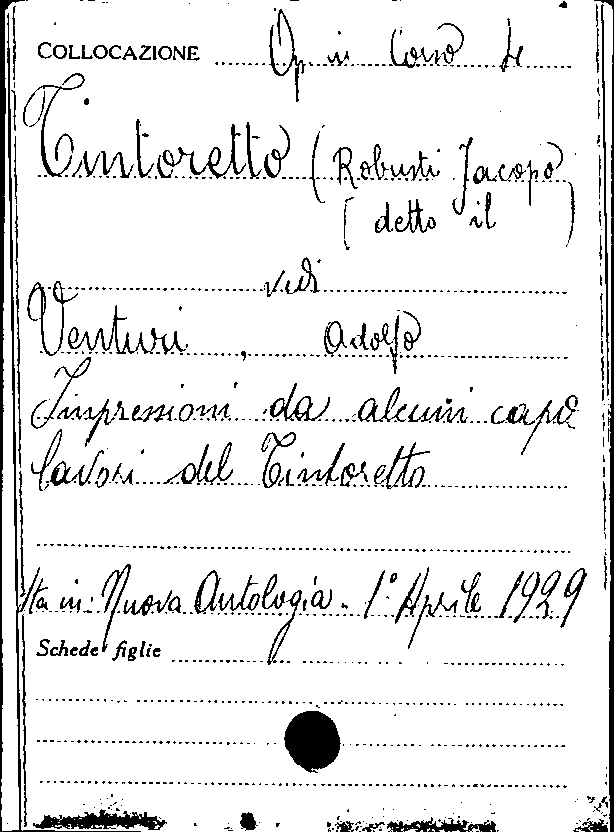 COLLOCAZIONE Op in Corso
Tintoretto (Robusti Jacopo
detto il)
vedi
Venturi, Adolfo
Impressioni da alcuni capo
lavori del Tintoretto
Sta in: Nuova Antologia - 1° Aprile 1929
Schede figlie